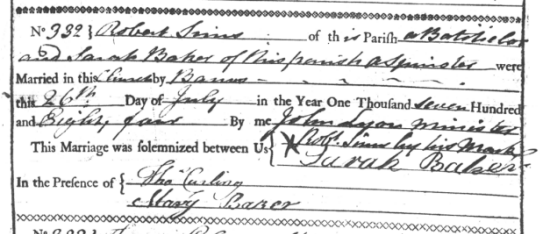 No 332 } Robert Sims of this Parish a Batchelor
and Sarah Baker of this parish a Spinster were
Married in this Church by Banns
this 26th Day of July in the Year One Thousand seven Hundred
and Eighty four By me John Lyon minister
This Marriage was solemnized between Us { X Robt Sims by his Mark
Sarah Baker
In the Presence of { Tho Curling
Mary Baker